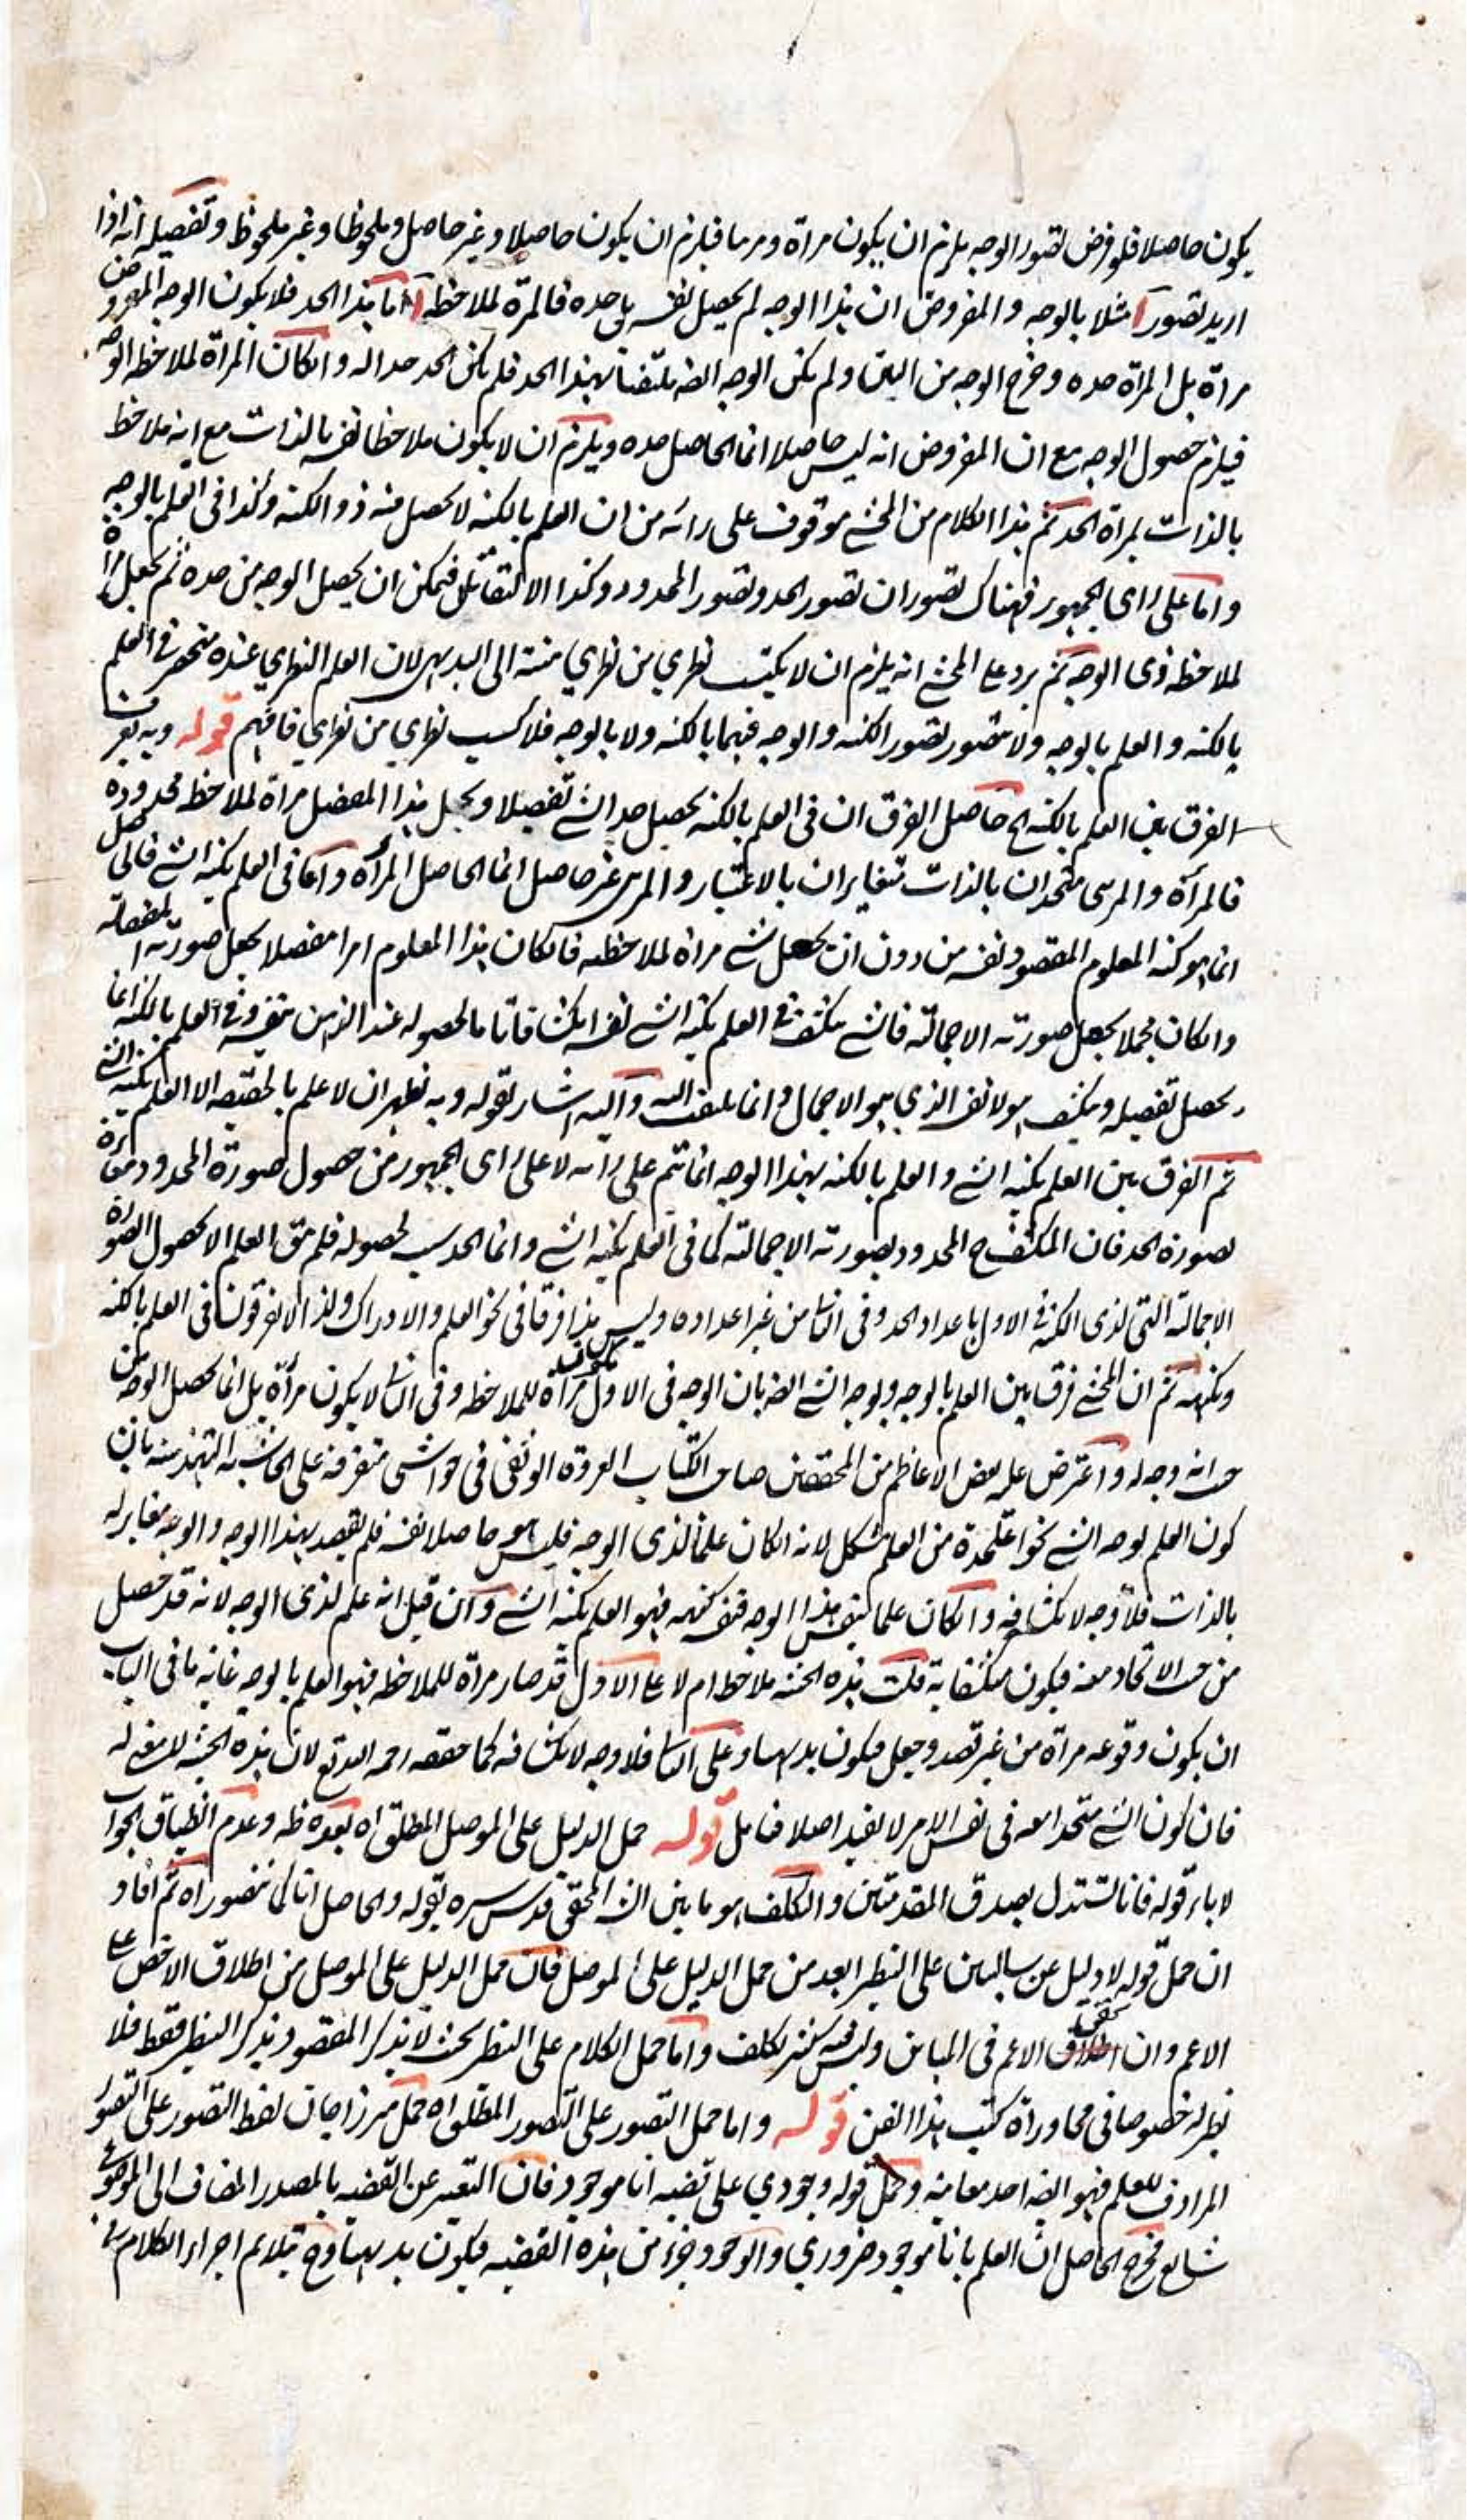 يكون حاصلا فلو فرض تصور الوجه يلزم ان يكون مراة ومرئيا فيلزم ان يكون حاصلا وغير حاصل وملحوظا وغير ملحوظ وتفصيله انه اذا
اريد تصور ا مثلا بالوجه والمفروض ان هذا الوجه لم يحصل نفسه بل حده فالمرآة لملاحظة ا اما هذا الحد فلا يكون الوجه المفروض
مراة بل المرآة حده وخرج الوجه من البين ولم يكن الوجه ايضا ملتفتا بهذا الحد فلم يكن الحد حدا له وان كان المرآة لملاحظة الوجه
فيلزم حصول الوجه مع ان المفروض انه ليس حاصلا انما الحاصل حده ويلزم ان لا يكون ملاحظا نفسه بالذات مع انه ملاحظ
بالذات بمرآة الحد ثم هذا الكلام من المحشي موقوف على رائه من ان العلم بالكنه لا يحصل منه ذو الكنه وكذا في العلم بالوجه
واما على راى الجمهور فهناك تصوران تصور الحد وتصور المحدود وكذا الالتفاتان فيمكن ان يحصل الوجه من حده ثم يجعل مرآة
لملاحظة ذى الوجه ثم يرد على المحشي انه يلزم ان لا يكتسب نظري من نظري منته الى البديهي لان العلم النظري عنده منحصر في العلم
بالكنه والعلم بالوجه ولا يتصور تصور الكنه والوجه فيهما بالكنه ولا بالوجه فلا كسب نظري من نظري فافهم قوله وبه يفرق
الفرق بين العلم بالكنه الخ حاصل الفرق ان في العلم بالكنه يحصل حد الشئ تفصيلا ويجعل هذا المفصل مرآة لملاحظة محدوده
فالمرآة والمرئى متحدان بالذات متغايران بالاعتبار والمرئى غير حاصل انما الحاصل المرآة واما في العلم بكنه الشئ فالحاصل
انما هو كنه المعلوم المقصود نفسه من دون ان يجعل شئ مرآة لملاحظته فان كان هذا المعلوم امرا مفصلا يحصل صورته المفصلة
وان كان مجملا يحصل صورته الاجمالية فالشئ منكشف في العلم بكنه الشئ نفسه انكشافا تاما لحصوله عند الذهن بنفسه وفي العلم بالكنه انما
يحصل تفصيله وينكشف هو لا نفسه الذي هو الاجمال وانما يلتفت اليه واليه اشار بقوله وبه يظهر ان لا علم بالحقيقة الا العلم بكنه الشئ
ثم الفرق بين العلم بكنه الشئ والعلم بالكنه بهذا الوجه انما يتم على رائه لا على راى الجمهور من حصول صورة المحدود مغايرة
لصورة الحد فان المنكشف ح المحدود بصورته الاجمالية كما في العلم بكنه الشئ وانما الحد سبب لحصوله فلم يبق العلم الا بحصول الصورة
الاجمالية التي لذى الكنه في الاول باعداد الحد وفي الثاني من غير اعداده وليس هذا فرقا في نحو العلم والادراك ولذا لا يفرقون في العلم بالكنه
وبكنهه ثم ان المحشي فرق بين العلم بالوجه وبوجه الشئ ايضا بان الوجه في الاول يكون مرآة للملاحظة وفي الثاني لا يكون مرآة بل انما يحصل الوجه من
حيث انه وجه له واعترض عليه بعض الاعاظم من المحققين صاحب الكتاب العروة الوثقى في حواشى متفرقة على الحاشية التهذيبية بان
كون العلم بوجه الشئ نحوا علحدة من العلم مشكل لانه ان كان علما لذى الوجه فليس هو حاصلا نفسه فلم يقصد بهذا الوجه والوجه مغاير له
بالذات فلا وجه لانكشافه وان كان علما بنفس هذا الوجه فنفسه كنهه فهو العلم بكنه الشئ وان قيل انه علم لذى الوجه لانه قد حصل
من حيث الاتحاد معه فيكون منكشفا به قلت هذه الحيثية ملاحظ ام لا على الاول قد صار مرآة للملاحظة فهو العلم بالوجه غاية ما في الباب
ان يكون وقوعه مرآة من غير قصد وجعل فيكون بديهيا وعلى الثاني فلا وجه لانكشافه كما حققه رحمه الله تع لان هذه الحيثية لا يغني له
فان كون الشئ متحدا معه في نفس الامر لا يفيد اصلا فتامل قوله حمل الدليل على الموصل المطلق اه بعده ظه وعدم انطباق الجواب
لاباء قوله فانا نستدل بصدق المقدمتين والتكلف هو ما بين الش المحقق قدس سره بقوله والحاصل انا كما نتصور اه ثم افاد
ان حمل قوله لا دليل عن سالبين على النظير ابعد من حمل الدليل على الموصل فان حمل الدليل على الموصل من اطلاق الاخص على
الاعم وان اطلاق الاعم في المباين وليس فيه كثير تكلف واما حمل الكلام على النظير بحيث لا يذكر المقصود ويذكر النظير فقط فلا
نظير له خصوصا في محاوراة كتب هذا الفن قوله واما حمل التصور على التصور المطلق اه حمل ميرزاجان لفظ التصور على التصور
المرادف للعلم فهو ايضا احد معانيه وحمل قوله وجودي على قضية انا موجود فان التعبير عن القضية بالمصدر المضاف الى الموضوع
شايع فخرج الحاصل ان العلم بانا موجود ضروري والوجود جزء من هذه القضية فيكون بديهيا وح يلائم اجراء الكلام في